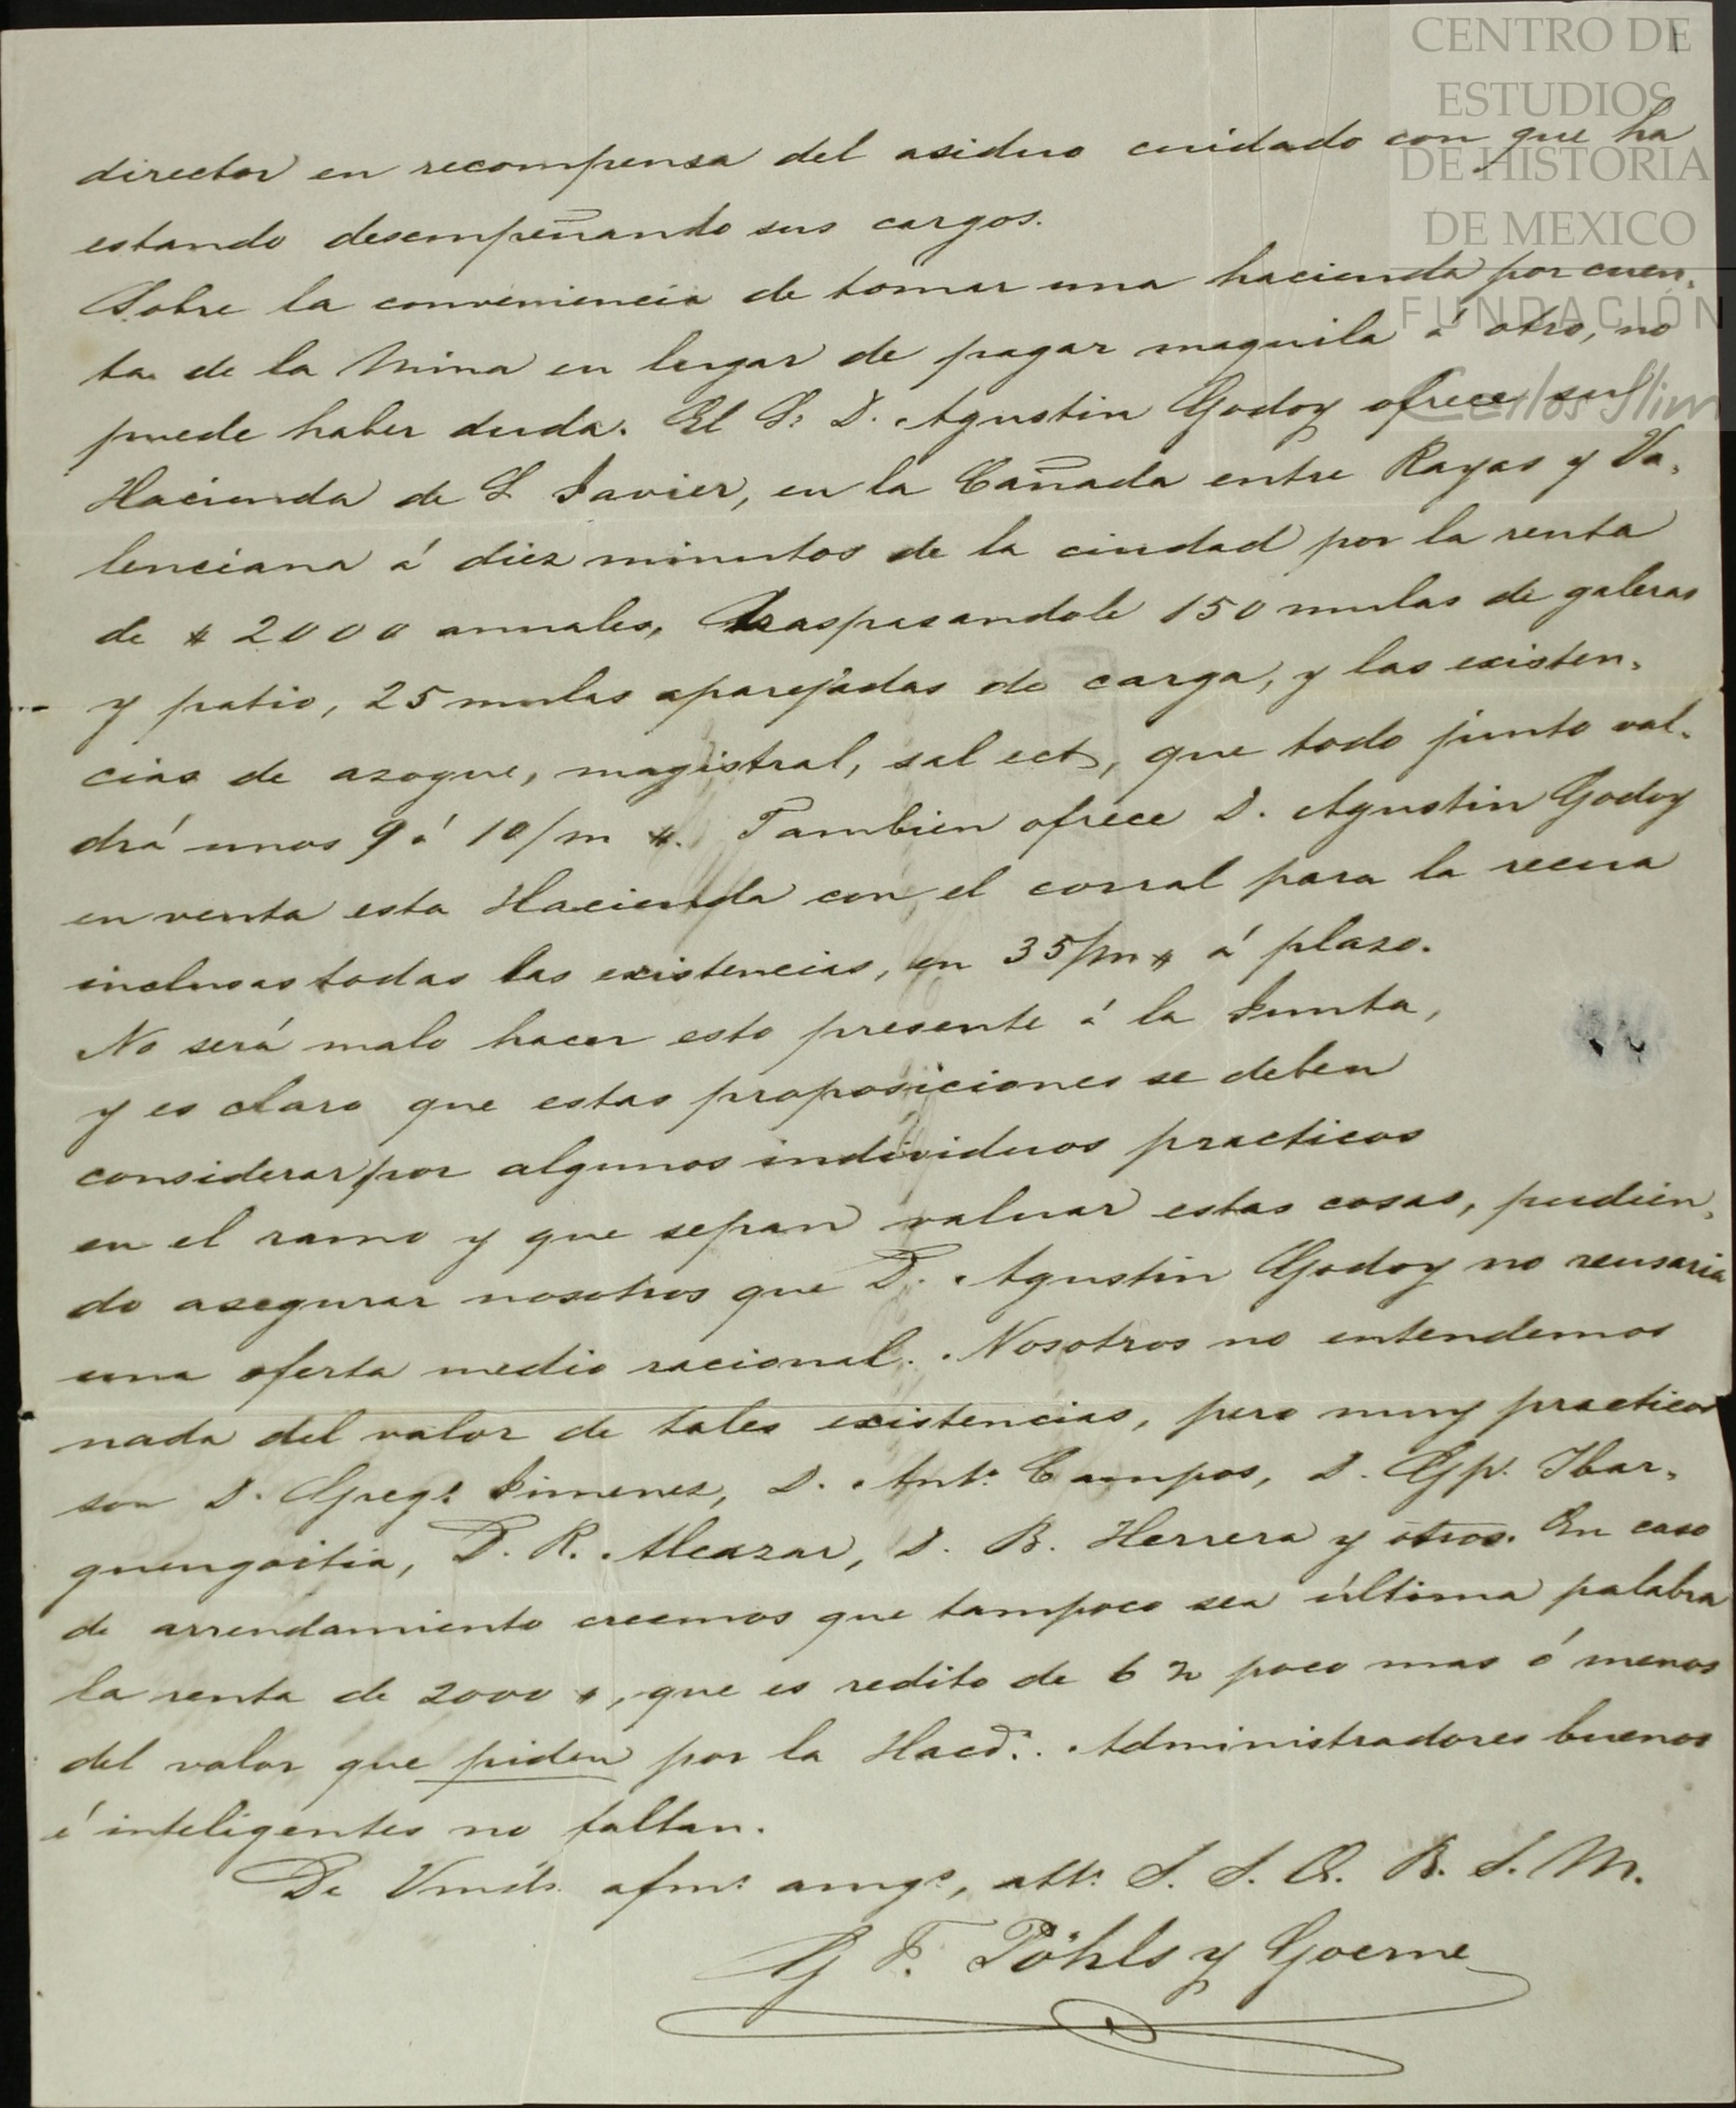 CENTRO DE
ESTUDIOS
DE HISTORIA
DE MEXICO
FUNDACIÓN
Carlos Slim
director en recompensa del asiduo cuidado con que ha
estando desempeñando sus cargos.
Sobre la conveniencia de tomar una hacienda por cuen-
ta de la Mina en lugar de pagar maquila á otro, no
puede haber duda. El Sr. D. Agustin Godoy ofrece su
Hacienda de S Javier, en la Cañada entre Rayas y Va-
lenciana á diez minutos de la ciudad por la renta
de $ 2000 annales, traspasandole 150 mulas de galeras
y patio, 25 mulas aparejadas de carga, y las existen-
cias de azogue, magistral, sal ect, que todo junto val-
drá unos 9 á 10/m $. Tambien ofrece D. Agustin Godoy
en venta esta Hacienda con el corral para la recua
inclusas todas las existencias, en 35/m $ á plazo.
No será malo hacer esto presente á la Junta,
y es claro que estas proposiciones se deben
considerar por algunos individuos practicos
en el ramo y que sepan valuar estas cosas, pudien-
do asegurar nosotros que D. Agustin Godoy no reusaria
una oferta medio racional. Nosotros no entendemos
nada del valor de tales existencias, pero muy practicos
son D. Grego. Jimenez, D. Anto. Campos, D. Gp. Ibar-
guengoitia, D. R. Alcazar, D. B. Herrera y otros. En caso
de arrendamiento creemos que tampoco sea última palabra
la renta de 2000 $, que es redito de 6 % poco mas ó menos
del valor que piden por la Hacda. Administradores buenos
é inteligentes no faltan.
De Vmds. afmos. amgos, atts. S. S. Q. B. S. M.
G F. Pöhls y Goerne